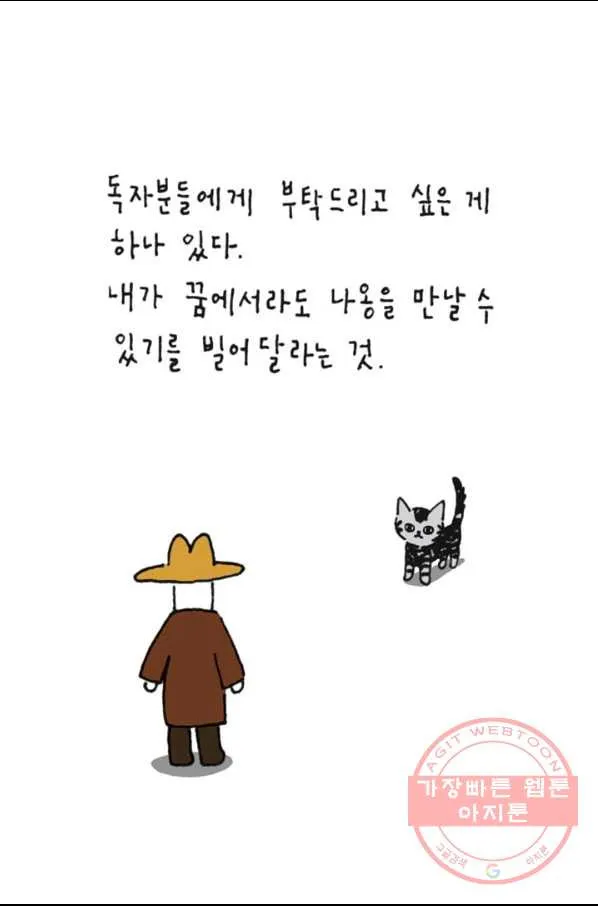 독자분들에게 부탁드리고 싶은 게
하나 있다.
내가 꿈에서라도 나옹을 만날 수
있기를 빌어달라는 것.
AGIT WEBTOON
가장빠른 웹툰
아지툰
구글검색 아지툰
G